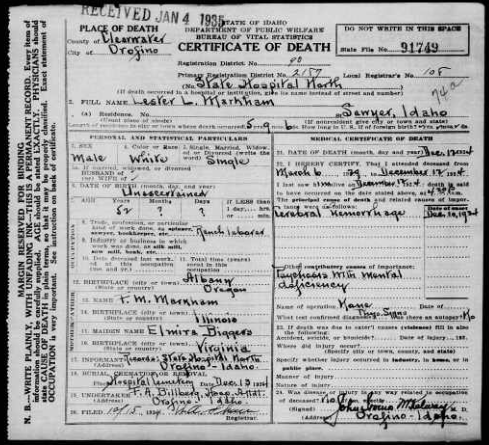 RECEIVED JAN 4 1935
PLACE OF DEATH
County of Clearwater
City of Orofino
STATE OF IDAHO
DEPARTMENT OF PUBLIC WELFARE
BUREAU OF VITAL STATISTICS
CERTIFICATE OF DEATH
DO NOT WRITE IN THIS SPACE
State File No. 91749
Registration District No. 90
Primary Registration District No. 2157 Local Registrar's No. 108
(No. State Hospital North
(If death occurred in a hospital or institution, give its name instead of street and number)
74a
2. FULL NAME Lester L. Markham
(a) Residence. No. Sawyer, Idaho
(Usual place of abode) (If nonresident give city or town and state)
Length of residence in city or town where death occurred 5 9 6 How long in U. S., if of foreign birth?
PERSONAL AND STATISTICAL PARTICULARS
MEDICAL CERTIFICATE OF DEATH
Male White Single
21. DATE OF DEATH (month, day, and year) Dec. 12 1934
22. I HEREBY CERTIFY, That I attended deceased from
March 6 1929 December 12, 1934
HUSBAND of
(or) WIFE of
DATE OF BIRTH (month, day, and year) Uncertained
AGE Years Months Days If LESS than
58 ? ?
to have occurred on the date stated above, at
The principal cause of death and related causes of importance were as follows:
Cerebral Hemorrhage Dec. 10, 1934
8. Trade, profession, or particular kind of work done, as spinner, sawyer, bookkeeper, etc. Ranch laborer
9. Industry or business in which work was done, as silk mill, saw mill, bank, etc.
Other contributory causes of importance:
Psychosis With Mental
deficiency
12. BIRTHPLACE (city or town) Albany
(State or country) Oregon
13. NAME F. M. Markham
14. BIRTHPLACE (city or town)
(State or country) Illinois
15. MAIDEN NAME Elmira Biggers
16. BIRTHPLACE (city or town)
(State or country) Virginia
Name of operation None Date of
What test confirmed diagnosis? Phys. Signs Was there an autopsy? No
23. If death was due to external causes (violence) fill in also the following:
Accident, suicide, or homicide? Date of injury
Where did injury occur?
(Specify city or town, county, and state)
Specify whether injury occurred in industry, in home, or in public place.
Manner of injury
Nature of injury
17. INFORMANT Records State Hospital North
Orofino - Idaho.
18. BURIAL, CREMATION, OR REMOVAL
Hospital Cemetery Date Dec 13 1934
19. UNDERTAKER
Orofino - Idaho.
20. FILED
Registrar.
24. Was disease or injury in any way related to occupation of deceased?
(Signed) M. D.
Orofino - Idaho.
MARGIN RESERVED FOR BINDING
N. B.—WRITE PLAINLY, WITH UNFADING INK—THIS IS A PERMANENT RECORD. Every item of
information should be carefully supplied. AGE should be stated EXACTLY. PHYSICIANS should
state CAUSE OF DEATH in plain terms, so that it may be properly classified. Exact statement of
OCCUPATION is very important. See instruction on back of certificate.